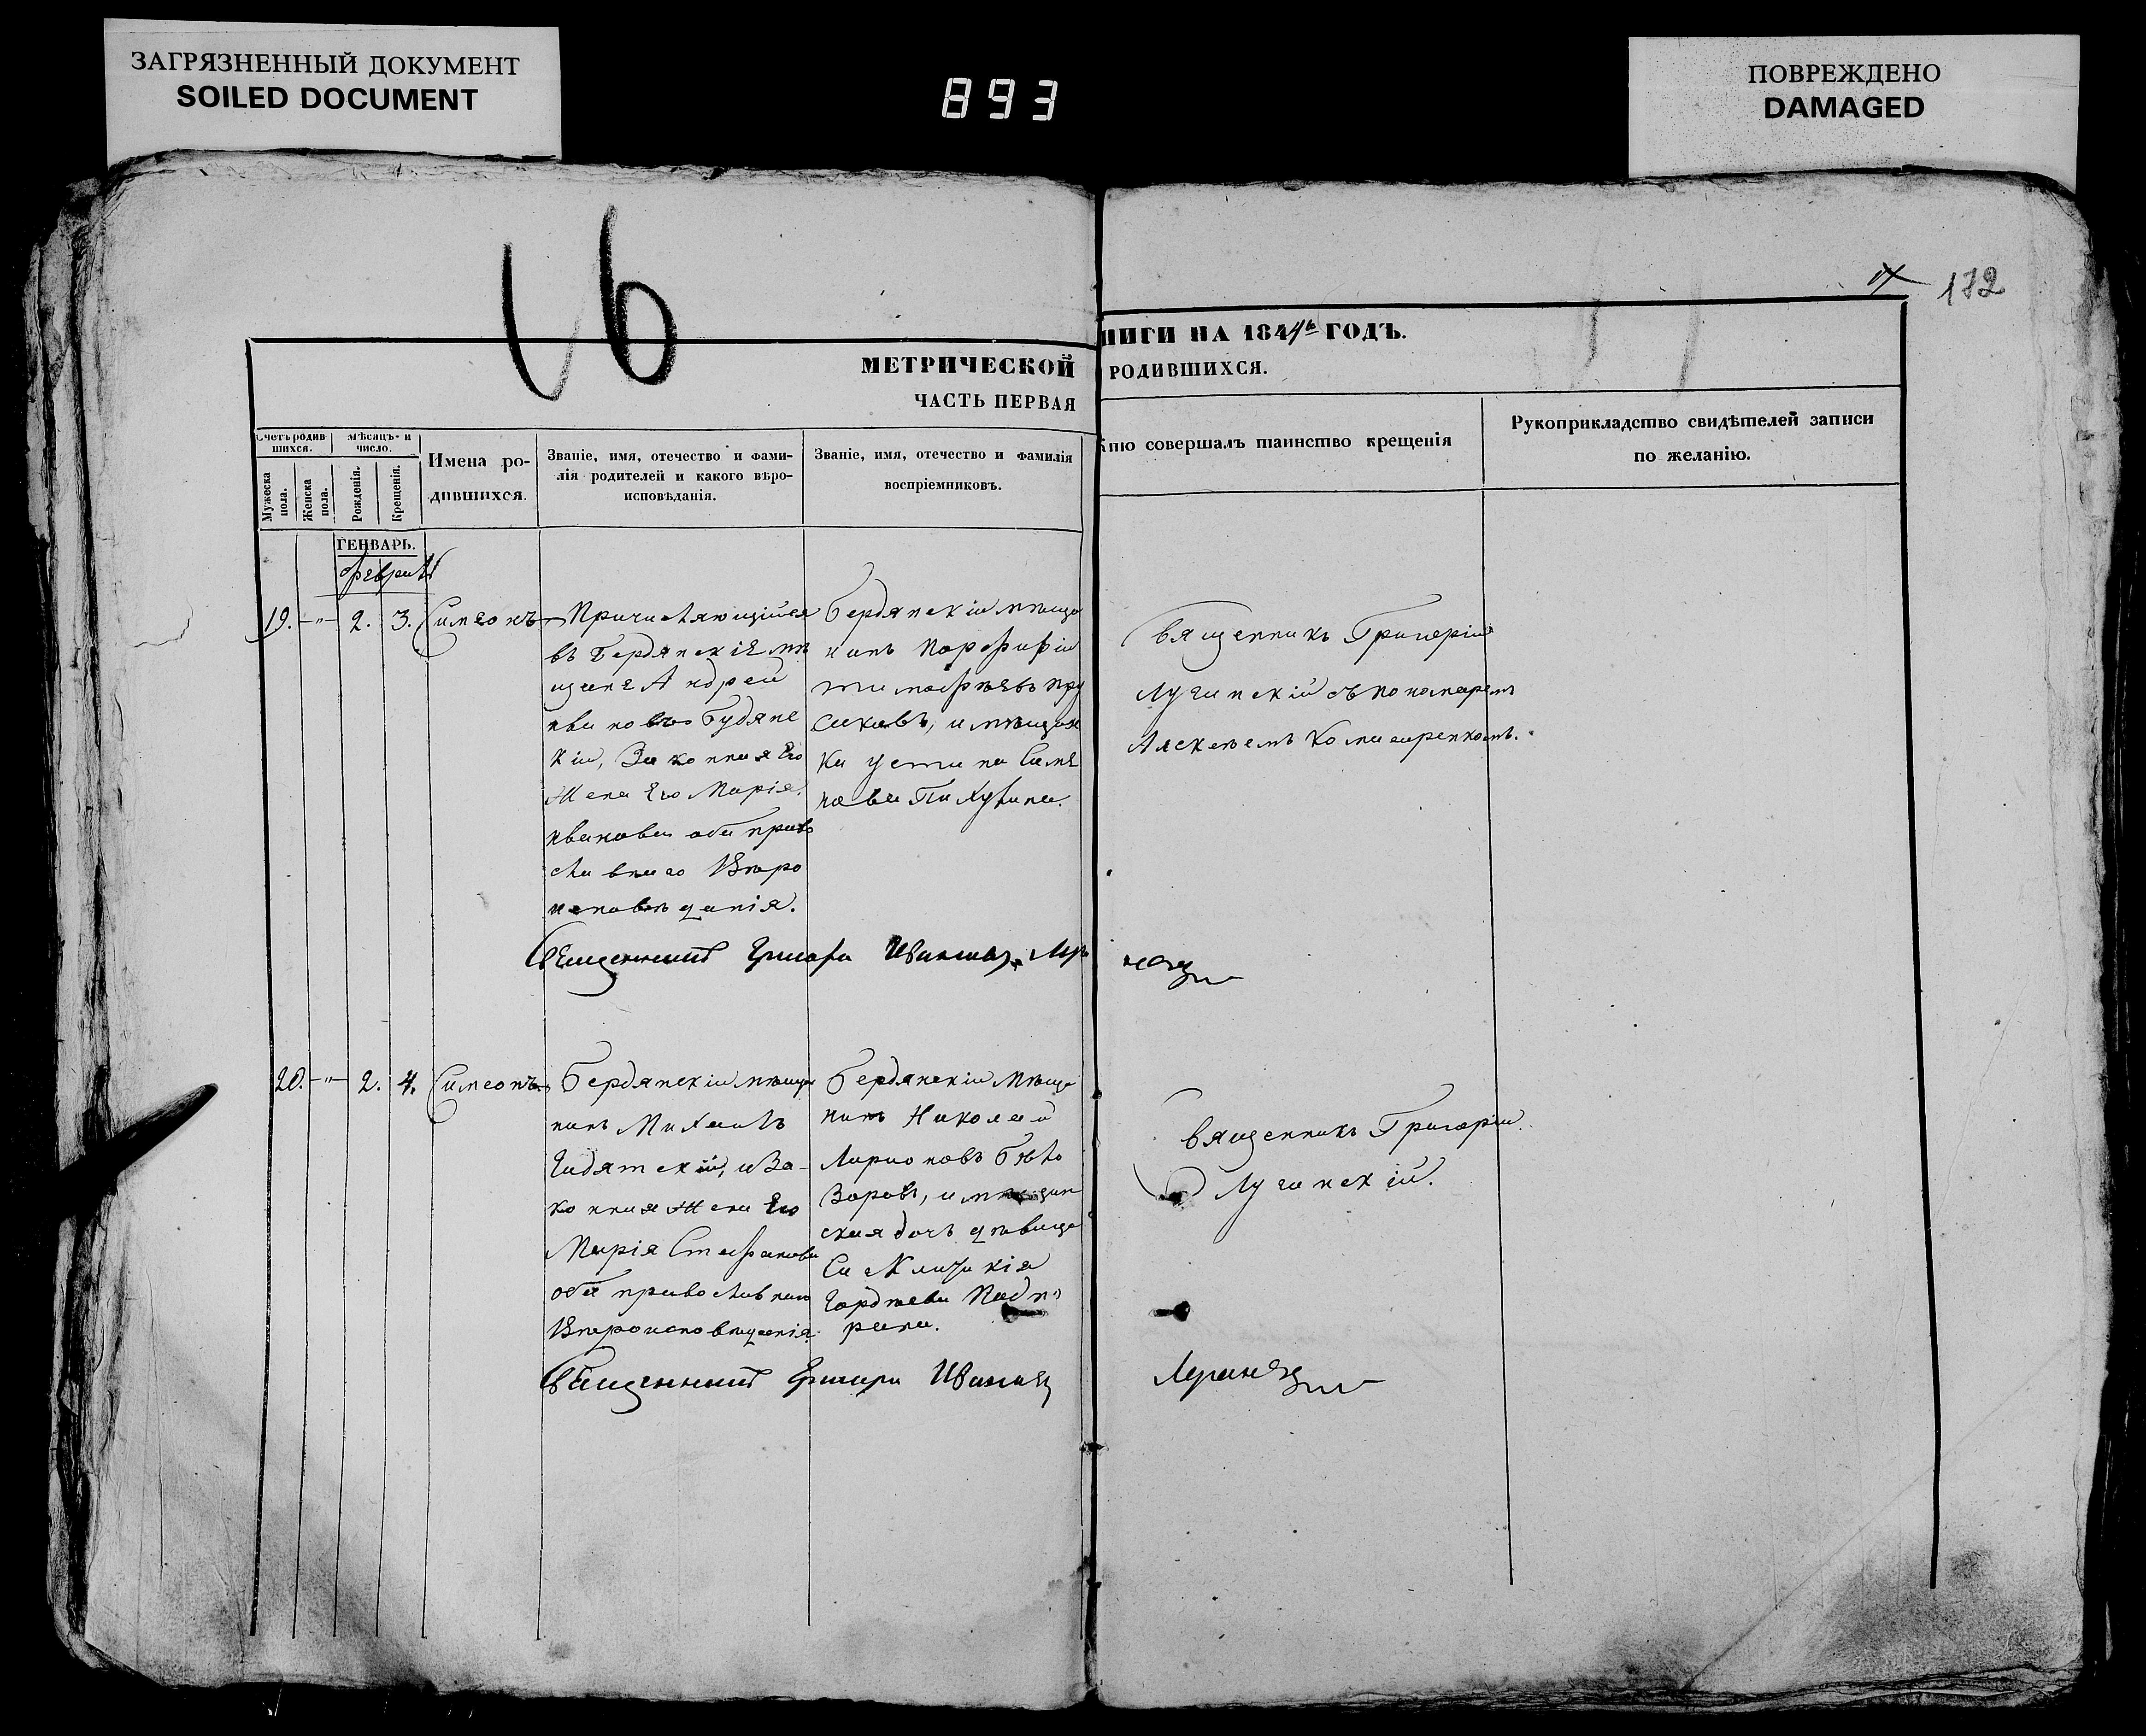 ЗАГРЯЗНЕННЫЙ ДОКУМЕНТ
SOILED DOCUMENT
893
ПОВРЕЖДЕНО
DAMAGED
172
МЕТРИЧЕСКОЙ
НИГИ НА 1844й ГОДЪ.
ЧАСТЬ ПЕРВАЯ
РОДИВШИХСЯ.
Счетъ родившихся.
Мужеска пола.
Женска пола.
Мѣсяцъ и число.
Рожденія.
Крещенія.
Имена родившихся.
Званіе, имя, отечество и фамилія родителей и какого вѣроисповѣданія.
Званіе, имя, отечество и фамилія воспріемниковъ.
Кто совершалъ таинство крещенія
Рукоприкладство свидѣтелей записи
по желанію.
ГЕНВАРЬ.
февраль
19. -"- 2. 3. Симеонъ
Причисляющійся
въ Бердянскіе мѣ
щане Андрей
Ивановъ Будян
кій, Законная Его
Жена Его Марія
Иванова оба право
славнаго Вѣро
исповѣданія.
Бердянскій мѣща
нинъ Порфирій
тимофѣевъ
и мѣщан
ка устина Симе
нова
Священникъ Григорій
съ пономаремъ
Алексѣемъ
Священникъ Григорій
20. -"- 2. 4. Симеонъ
Бердянскій мѣща
нинъ Михаилъ
Гадятскій, и За-
конная Жена Его
Марія Стефанова
оба православнаго
Вѣроисповѣданія.
Бердянскій Мѣща
нинъ Николай
Ларионовъ Бѣло
Зоровъ, и мѣщан
ская дочь дѣвица
Гордѣева
Священникъ Григорій
Священникъ Григорій